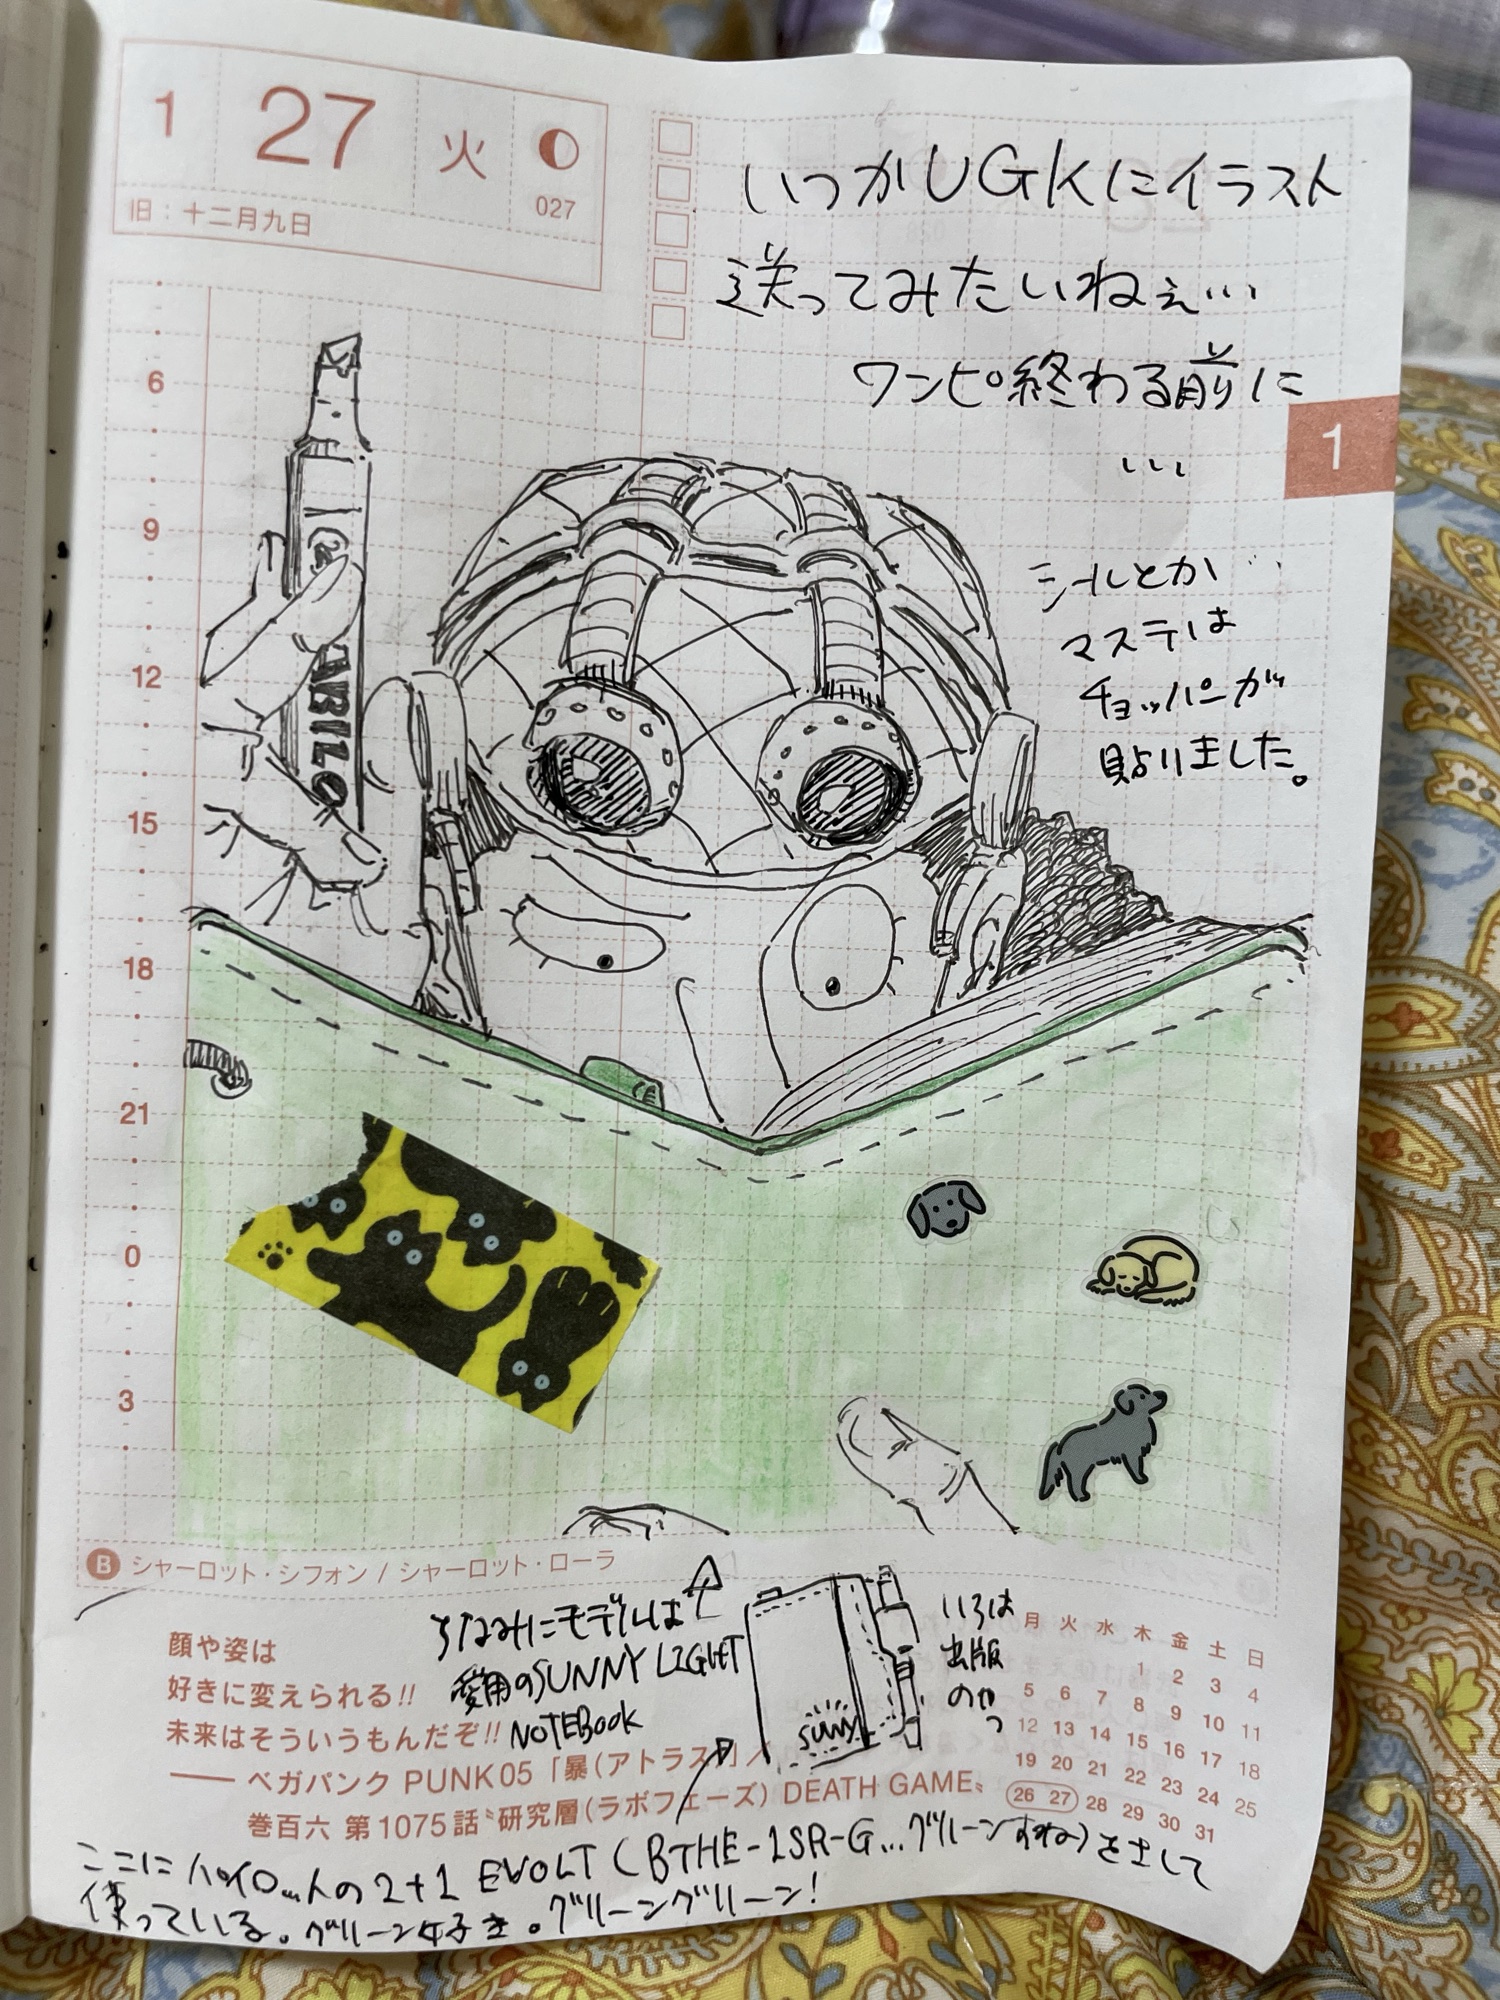 1 27 火
027
旧：十二月九日
いつかUGKにイラスト
送ってみたいねぇ…
ワンピ終わる前に
…
1
シールとか…
マステは
チョッパーが
貼りました。
6
9
12
15
18
21
0
3
ABILO
B シャーロット・シフォン / シャーロット・ローラ
顔や姿は
好きに変えられる!!
未来はそういうもんだぞ!!
―― ベガパンク PUNK05「暴(アトラス)」/
巻百六 第1075話〝研究層(ラボフェーズ) DEATH GAME〟
ちなみにモデルは
愛用のSUNNY LIGHT
NOTEBOOK
SUNNY
いろは
出版
のやつ
月 火 水 木 金 土 日
1 2 3 4
5 6 7 8 9 10 11
12 13 14 15 16 17 18
19 20 21 22 23 24 25
26 27 28 29 30 31
ここにパイロットの2+1 EVOLT (BTHE-1SR-G…グリーンすね)をさして
使っている。グリーン好き。グリーングリーン!